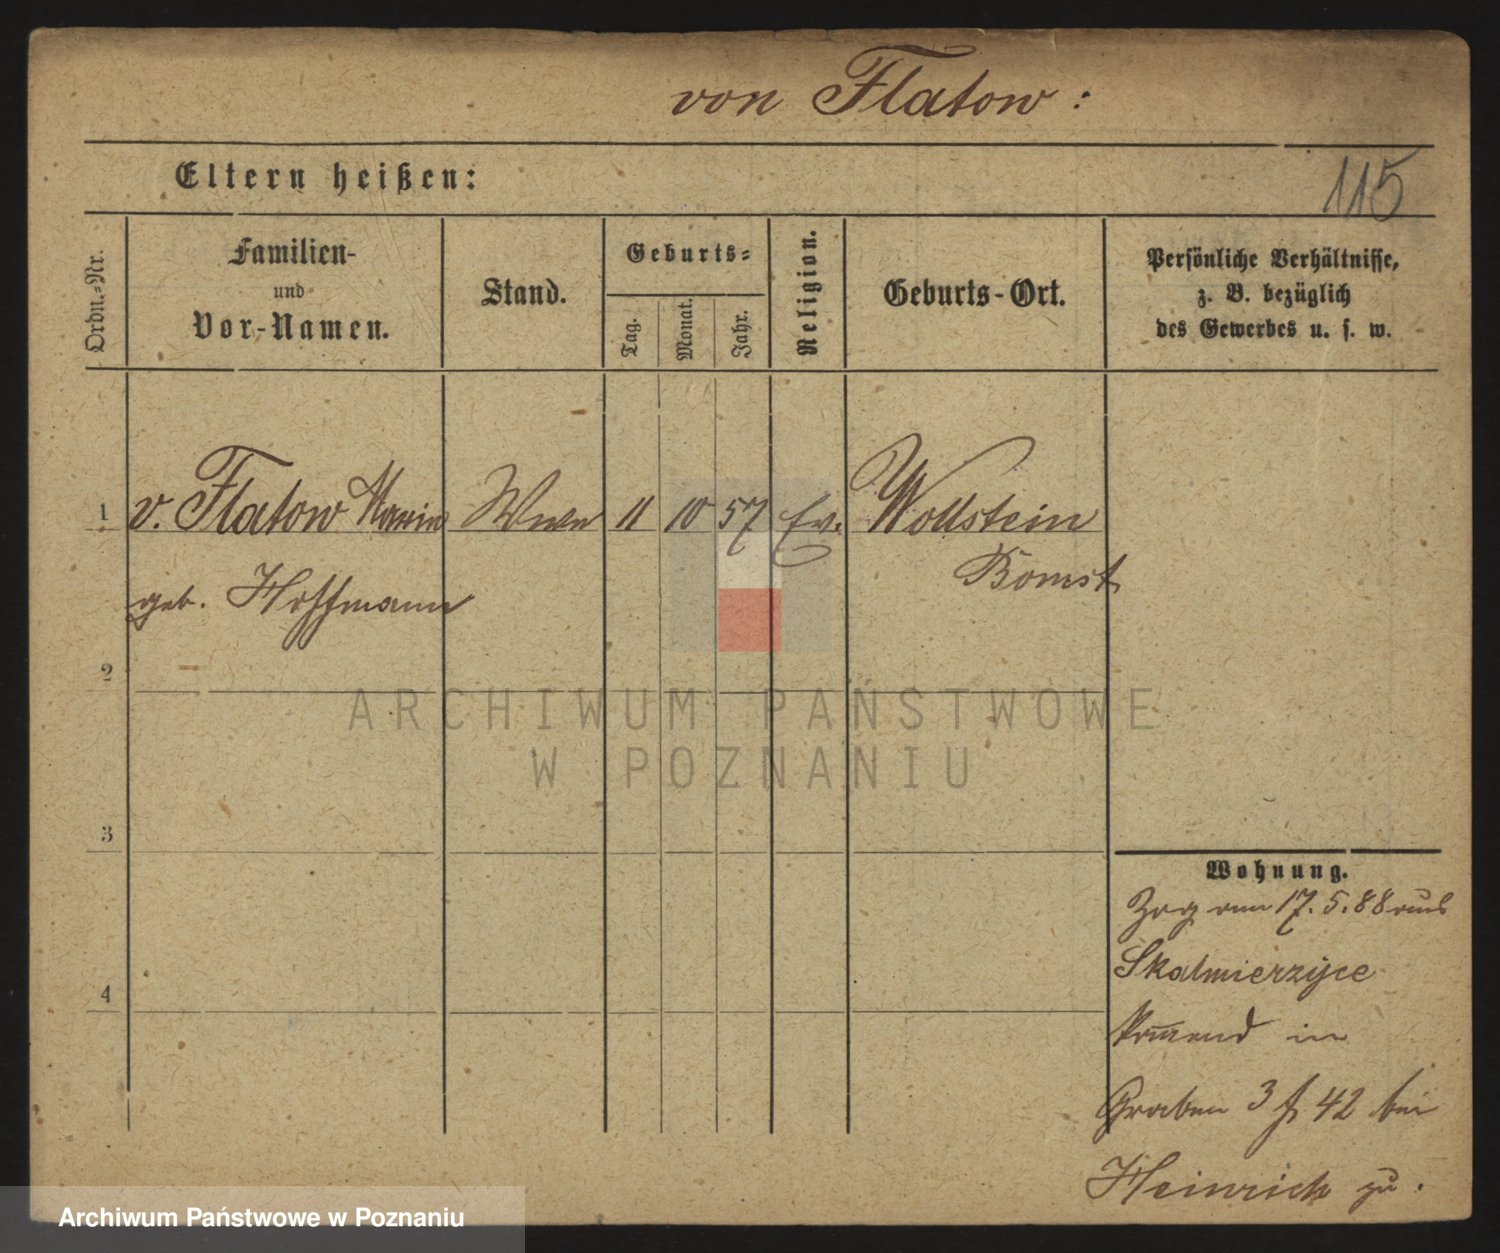 von Flatow:
Eltern heißen:
115
Ordn.-Nr.
Familien-
und
Vor-Namen.
Stand.
Geburts-
Tag.
Monat.
Jahr.
Religion.
Geburts-Ort.
Persönliche Verhältnisse,
z. B. bezüglich
des Gewerbes u. s. w.
1 v. Flatow Maria Wwe 11 10 57 Ev. Wollstein
geb. Hoffmann Bomst
2
3
4
ARCHIWUM PAŃSTWOWE
W POZNANIU
Wohnung.
Zog am 17.5.88 aus
Skalmierzyce
kom̅end in
Graben 3 f 42 bei
Heinrich zu.
Archiwum Państwowe w Poznaniu